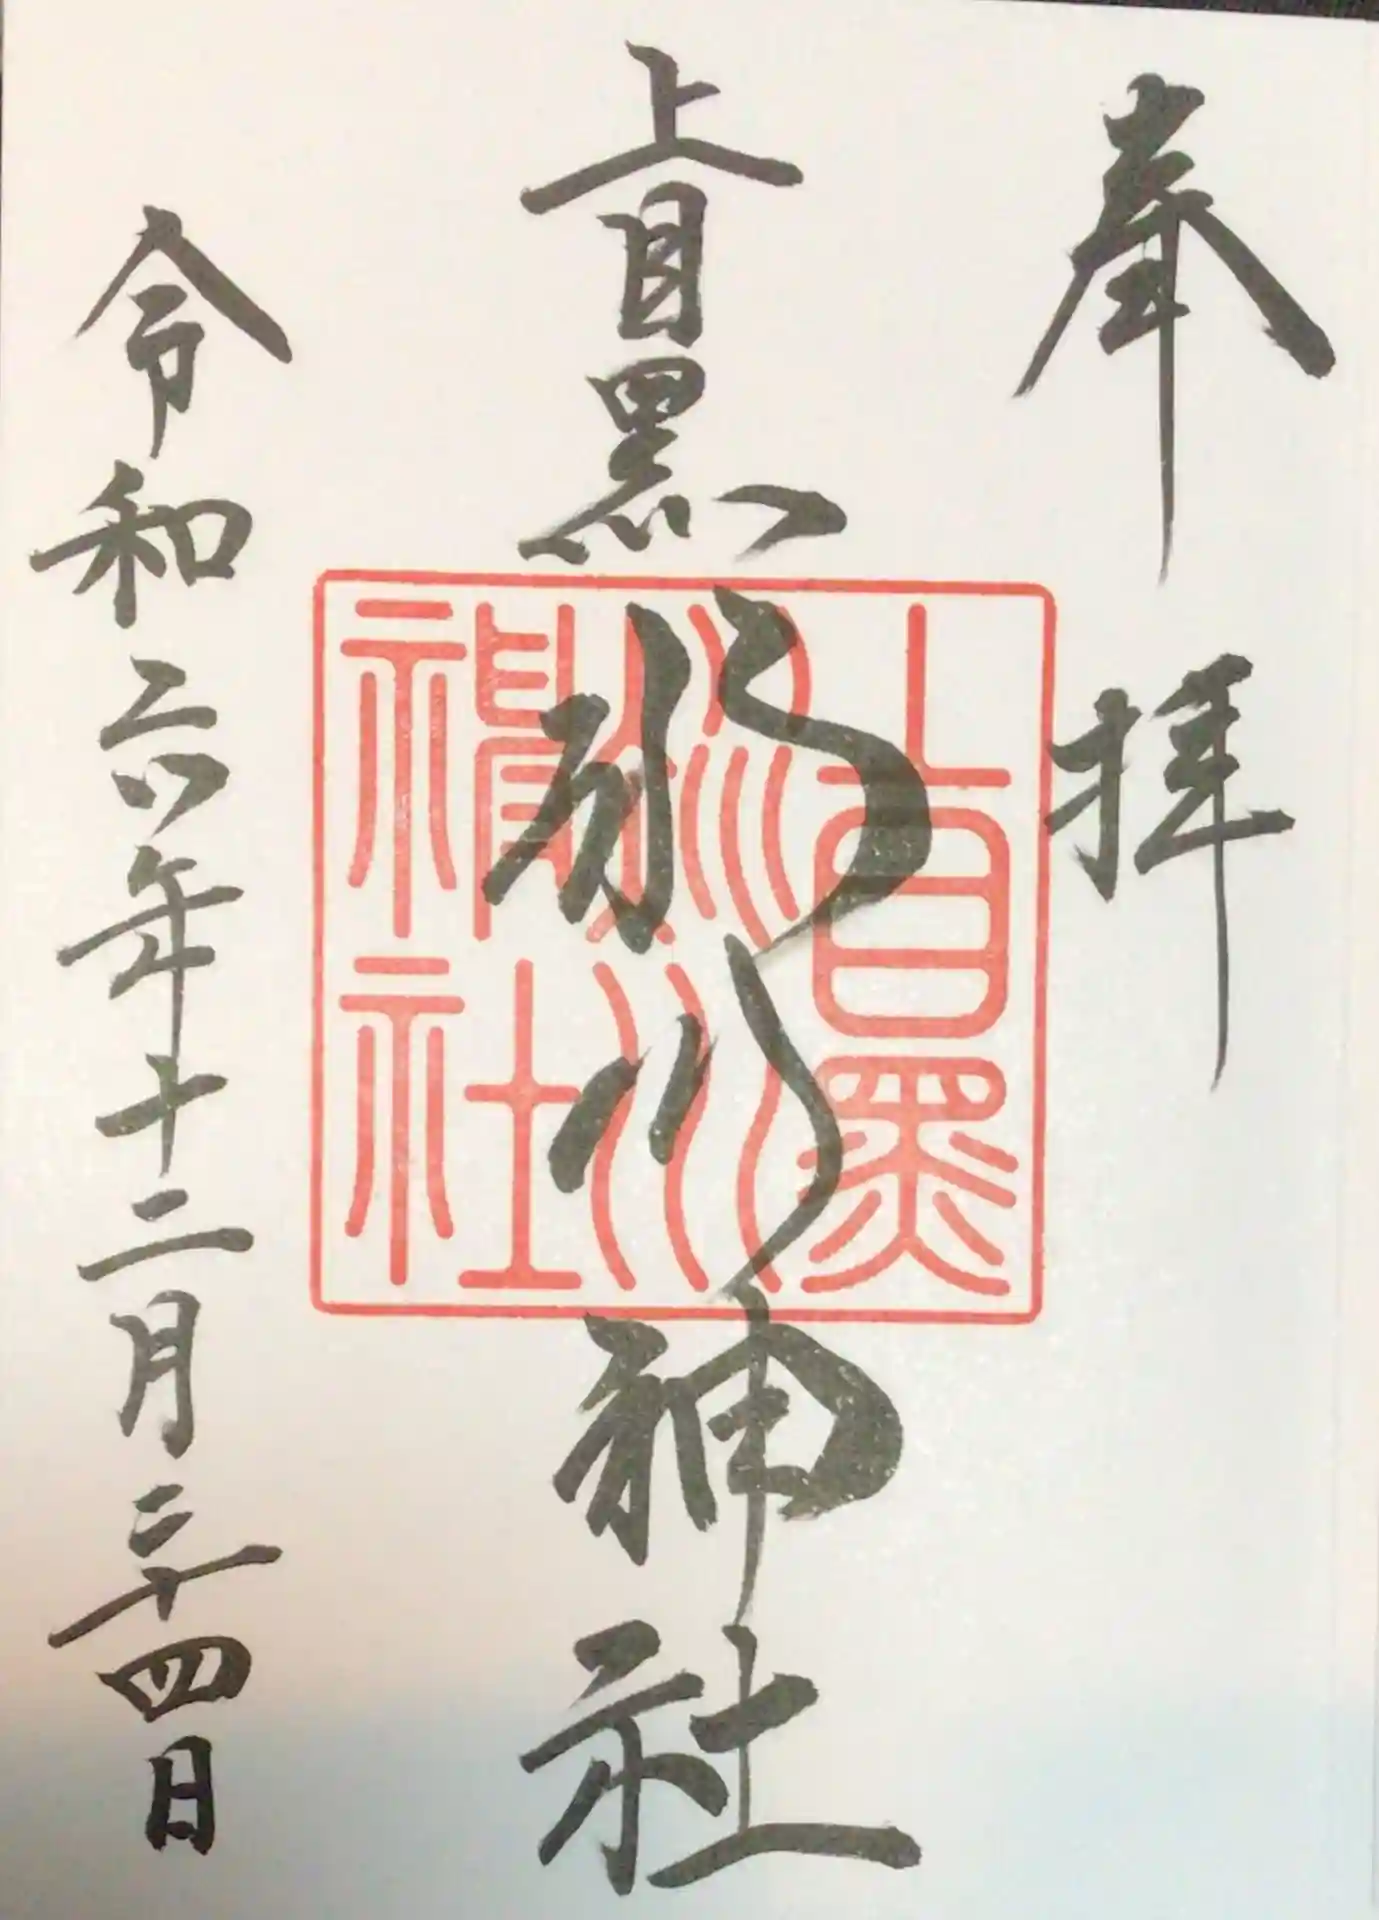 奉拝
上目黒氷川神社
上目黒
氷川
神社
令和六年十二月二十四日